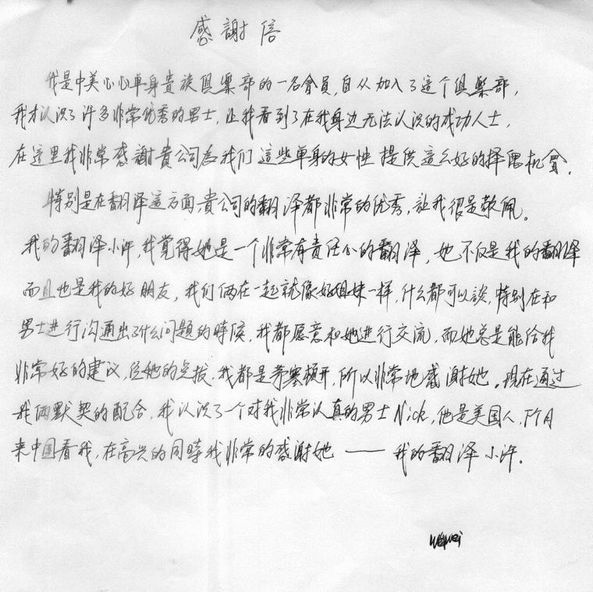 感謝信
我是中美心心单身貴族俱樂部的一名會員,自从加入了这个俱樂部,
我才认识了许多非常优秀的男士,让我看到了在我身边无法认识的成功人士,
在这里我非常感謝貴公司為我们這些单身的女性提供這么好的择偶机會.
特别是在翻泽這方面,貴公司的翻泽都非常的优秀,讓我很是敬佩。
我的翻泽小许,我覺得她是一个非常有责任心的翻泽,她不仅是我的翻泽
而且也是我的好朋友,我们俩在一起就像好姐妹一样,什么都可以谈,特别在和
男士进行沟通出了什么问题的時候,我都愿意和她进行交流,而她总是能给我
非常好的建议,经她的点拨,我都是茅塞顿开,所以非常地感谢她。现在通过
我俩默契的配合,我认识了一个对我非常认真的男士Nick,他是美国人,7月
来中国看我,在高兴的同時我非常的感谢她——我的翻泽小许.
weiwei